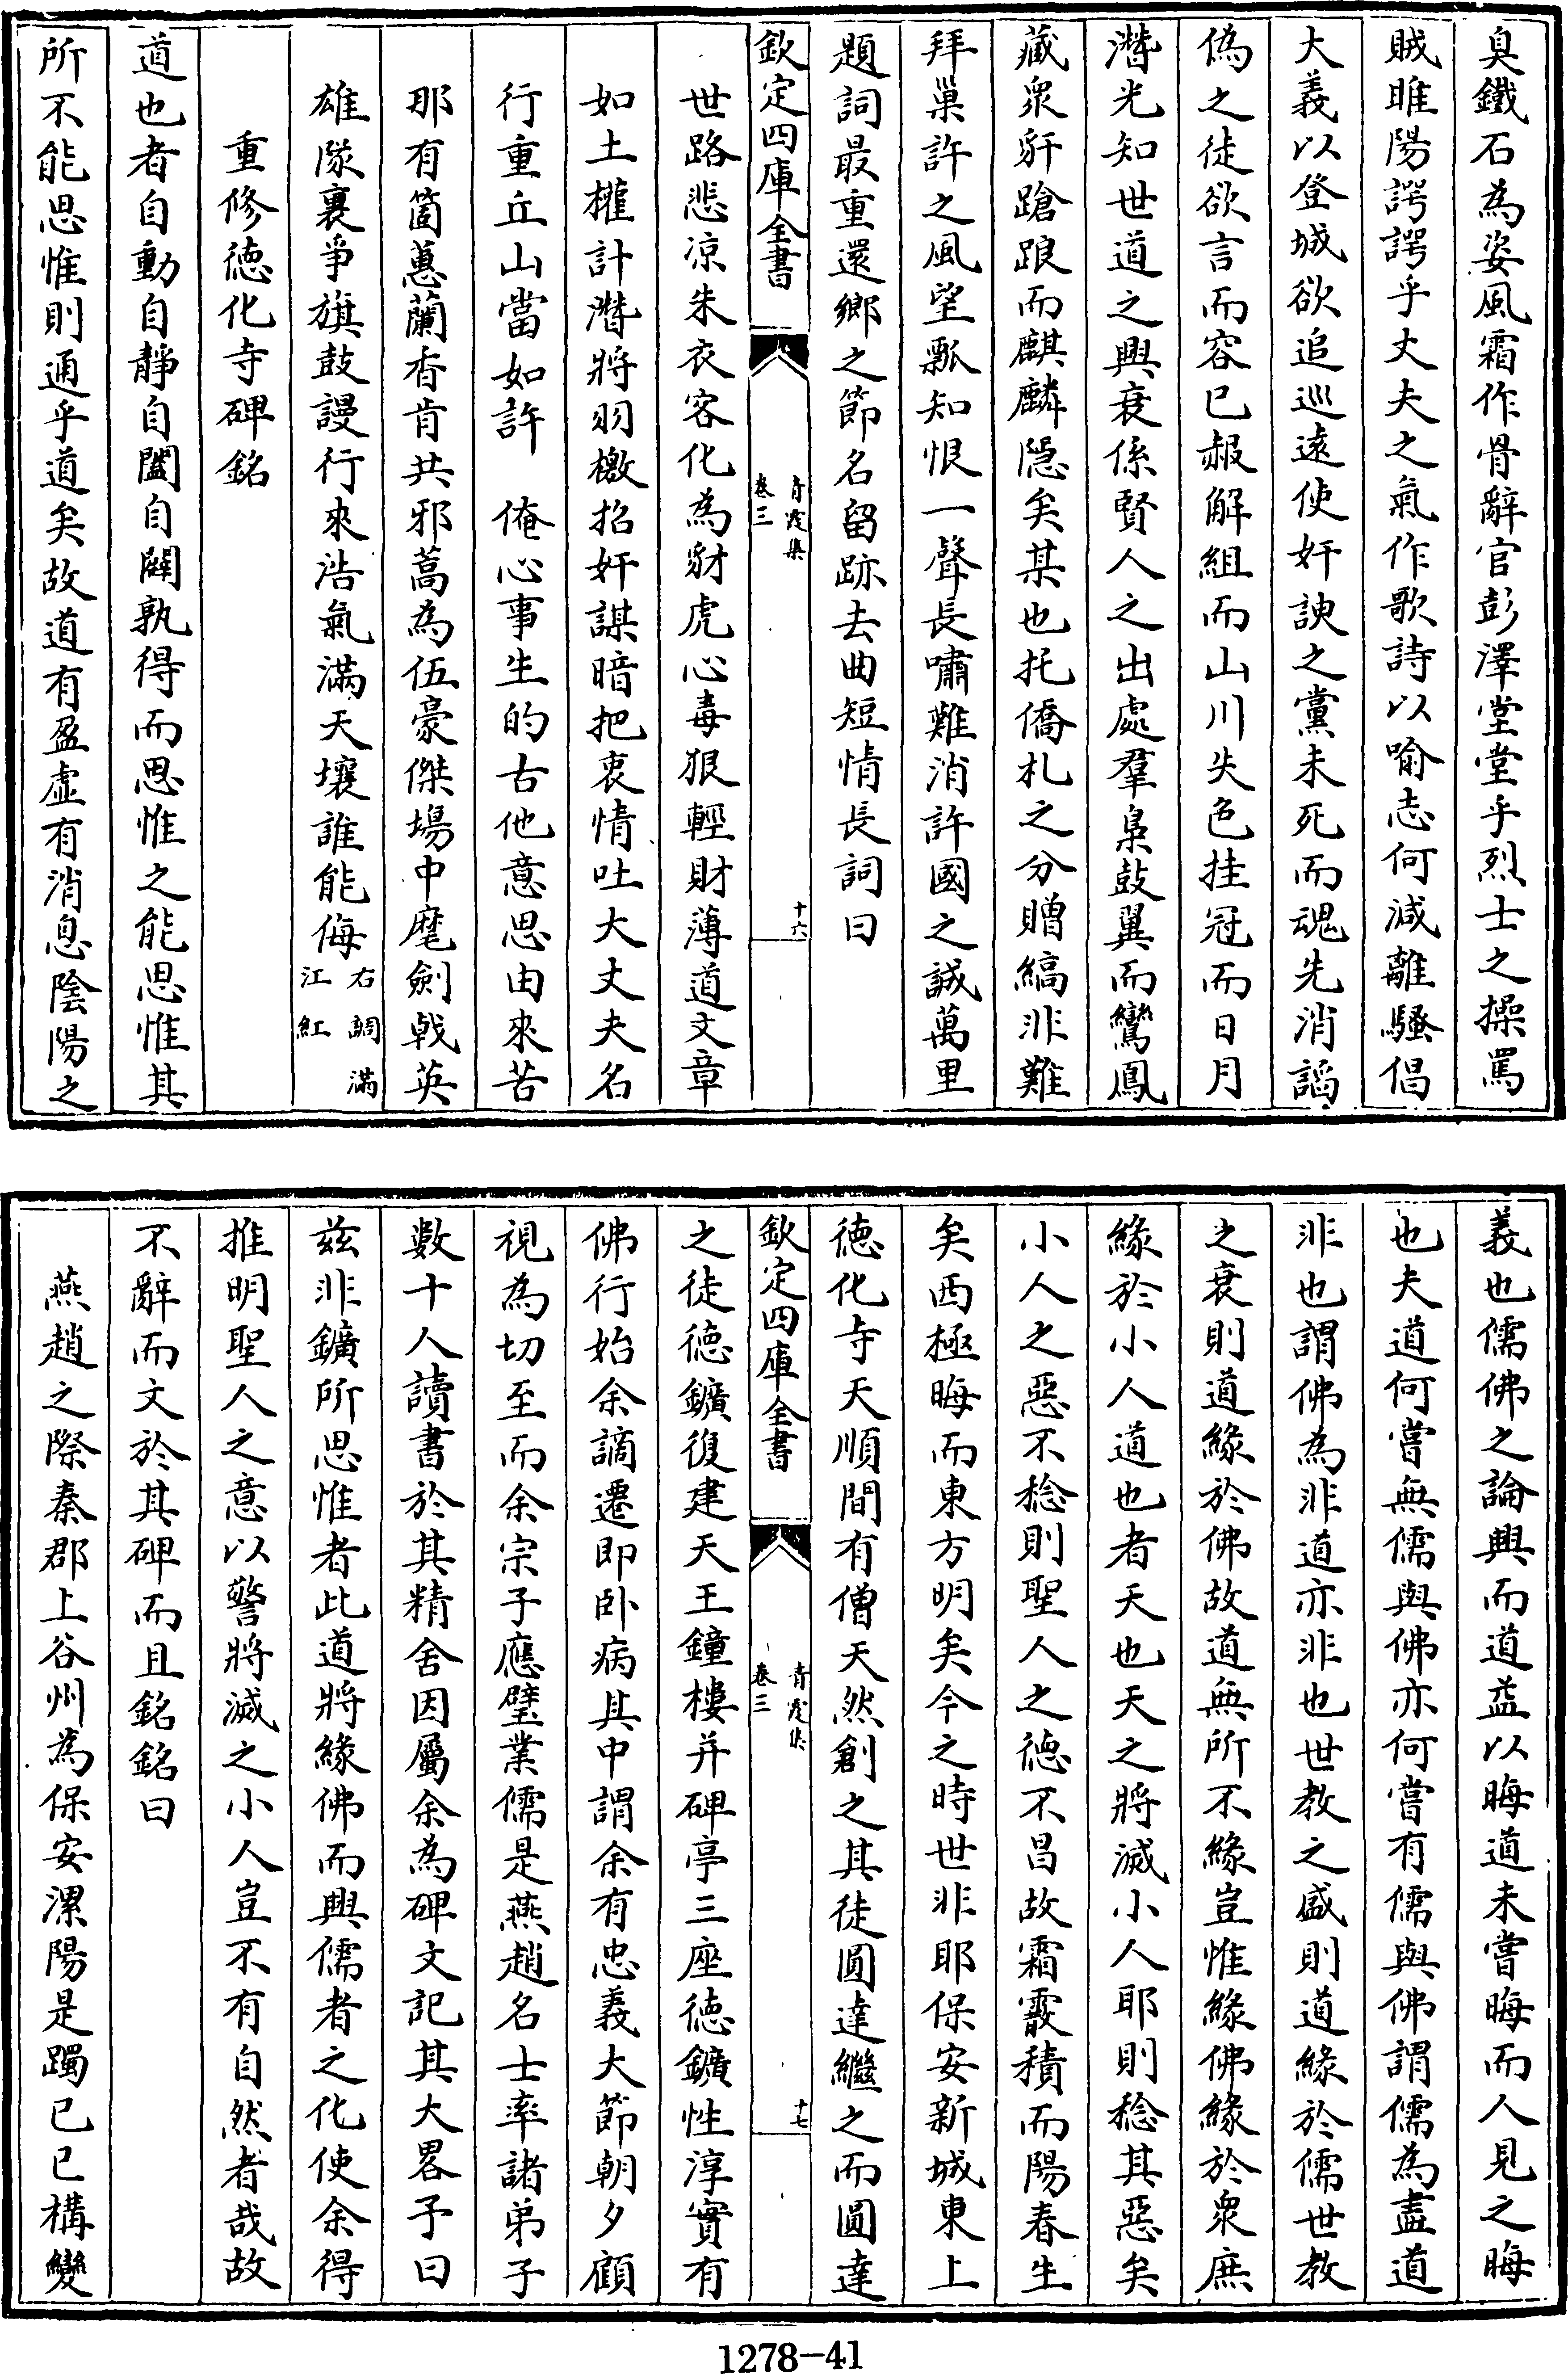 臭鐵石為姿風霜作骨辭官彭澤堂堂乎烈士之操罵
賊睢陽諤諤乎丈夫之氣作歌詩以喻志何減離騷倡
大義以登城欲追巡遠使奸諛之黨未死而魂先消謟
偽之徒欲言而容已赧解組而山川失色挂冠而日月
潛光知世道之興衰係賢人之出處羣梟鼓翼而鸞鳳
藏衆豜蹌踉而麒麟隱矣某也托僑札之分贈縞非難
拜巢許之風望瓢知恨一聲長嘯難消許國之誠萬里
題詞最重還鄉之節名留跡去曲短情長詞曰
欽定四庫全書
青霞集
卷三
十六
世路悲凉朱衣客化為豺虎心毒狠輕財薄道文章
如土權計潛將羽檄招奸謀暗把衷情吐大丈夫名
行重丘山當如許　俺心事生的古他意思由來苦
那有箇蕙蘭香肯共邪蒿為伍豪傑場中麾劍戟英
雄隊裏爭旗鼓謾行來浩氣滿天壤誰能侮右調滿江紅
重修德化寺碑銘
道也者自動自靜自闔自闢孰得而思惟之能思惟其
所不能思惟則通乎道矣故道有盈虛有消息陰陽之
義也儒佛之論興而道益以晦道未嘗晦而人見之晦
也夫道何嘗無儒與佛亦何嘗有儒與佛謂儒為盡道
非也謂佛為非道亦非也世教之盛則道緣於儒世教
之衰則道緣於佛故道無所不緣豈惟緣佛緣於衆庶
緣於小人道也者天也天之將滅小人耶則稔其惡矣
小人之惡不稔則聖人之德不昌故霜霰積而陽春生
矣西極晦而東方明矣今之時世非耶保安新城東上
德化寺天順間有僧天然創之其徒圓達繼之而圓達
欽定四庫全書
青霞集
卷三
十七
之徒德鑛復建天王鐘樓并碑亭三座德鑛性淳實有
佛行始余謫遷即卧病其中謂余有忠義大節朝夕顧
視為切至而余宗子應璧業儒是燕趙名士率諸弟子
數十人讀書於其精舍因屬余為碑文記其大畧予曰
兹非鑛所思惟者此道將緣佛而興儒者之化使余得
推明聖人之意以警將滅之小人豈不有自然者哉故
不辭而文於其碑而且銘銘曰
燕趙之際秦郡上谷州為保安漯陽是躅已已構變
1278-41